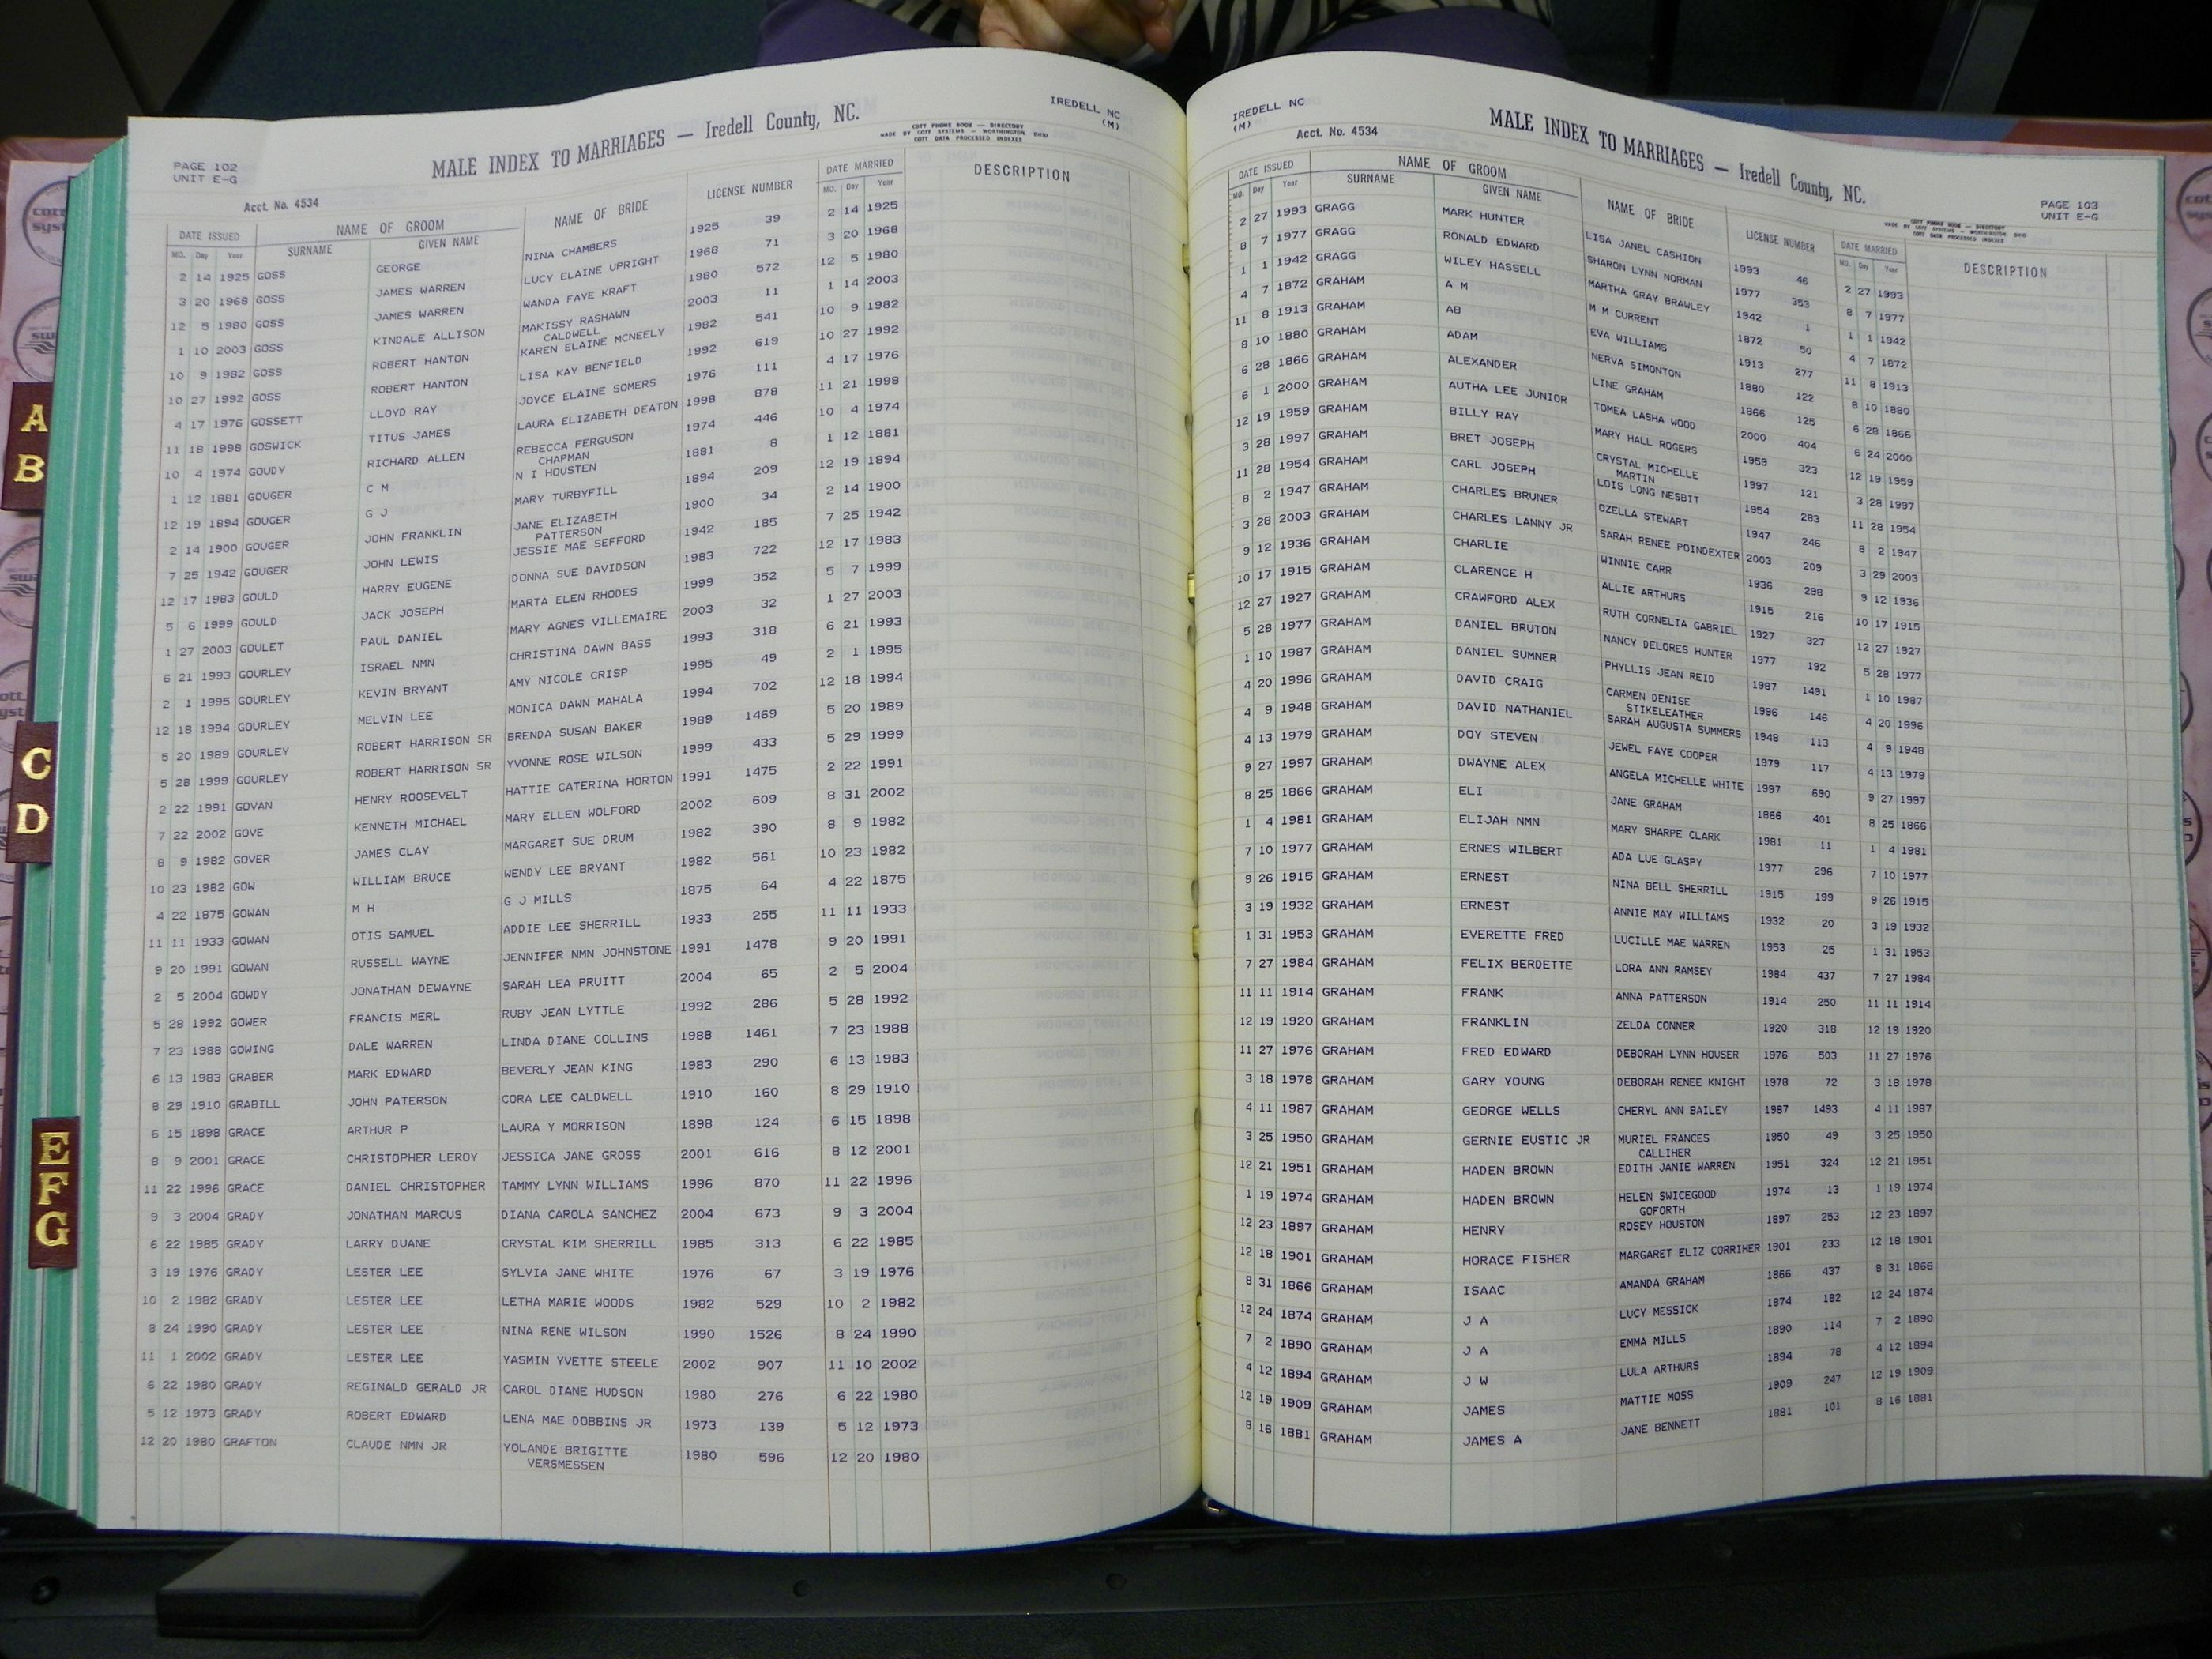 IREDELL NC
(M)
MALE INDEX TO MARRIAGES — Iredell County, NC.
COTT PHONE BOOK — DIRECTORY
MADE BY COTT SYSTEMS — WORTHINGTON OHIO
COTT DATA PROCESSED INDEXES
PAGE 102
UNIT E-G
Acct. No. 4534
DATE ISSUED NAME OF GROOM NAME OF BRIDE LICENSE NUMBER DATE MARRIED DESCRIPTION
MO. Day Year SURNAME GIVEN NAME MO. Day Year
2 14 1925 GOSS GEORGE NINA CHAMBERS 1925 39 2 14 1925
3 20 1968 GOSS JAMES WARREN LUCY ELAINE UPRIGHT 1968 71 3 20 1968
12 5 1980 GOSS JAMES WARREN WANDA FAYE KRAFT 1980 572 12 5 1980
1 10 2003 GOSS KINDALE ALLISON MAKISSY RASHAWN 2003 11 1 14 2003
CALDWELL
10 9 1982 GOSS ROBERT HANTON KAREN ELAINE MCNEELY 1982 541 10 9 1982
10 27 1992 GOSS ROBERT HANTON LISA KAY BENFIELD 1992 619 10 27 1992
4 17 1976 GOSSETT LLOYD RAY JOYCE ELAINE SOMERS 1976 111 4 17 1976
11 18 1998 GOSWICK TITUS JAMES LAURA ELIZABETH DEATON 1998 878 11 21 1998
10 4 1974 GOUDY RICHARD ALLEN REBECCA FERGUSON 1974 446 10 4 1974
CHAPMAN
1 12 1881 GOUGER C M N I HOUSTEN 1881 8 1 12 1881
12 19 1894 GOUGER G J MARY TURBYFILL 1894 209 12 19 1894
2 14 1900 GOUGER JOHN FRANKLIN JANE ELIZABETH 1900 34 2 14 1900
PATTERSON
7 25 1942 GOUGER JOHN LEWIS JESSIE MAE SEFFORD 1942 185 7 25 1942
12 17 1983 GOULD HARRY EUGENE DONNA SUE DAVIDSON 1983 722 12 17 1983
5 6 1999 GOULD JACK JOSEPH MARTA ELEN RHODES 1999 352 5 7 1999
1 27 2003 GOULET PAUL DANIEL MARY AGNES VILLEMAIRE 2003 32 1 27 2003
6 21 1993 GOURLEY ISRAEL NMN CHRISTINA DAWN BASS 1993 318 6 21 1993
2 1 1995 GOURLEY KEVIN BRYANT AMY NICOLE CRISP 1995 49 2 1 1995
12 18 1994 GOURLEY MELVIN LEE MONICA DAWN MAHALA 1994 702 12 18 1994
5 20 1989 GOURLEY ROBERT HARRISON SR BRENDA SUSAN BAKER 1989 1469 5 20 1989
5 28 1999 GOURLEY ROBERT HARRISON SR YVONNE ROSE WILSON 1999 433 5 29 1999
2 22 1991 GOVAN HENRY ROOSEVELT HATTIE CATERINA HORTON 1991 1475 2 22 1991
7 22 2002 GOVE KENNETH MICHAEL MARY ELLEN WOLFORD 2002 609 8 31 2002
8 9 1982 GOVER JAMES CLAY MARGARET SUE DRUM 1982 390 8 9 1982
10 23 1982 GOW WILLIAM BRUCE WENDY LEE BRYANT 1982 561 10 23 1982
4 22 1875 GOWAN M H G J MILLS 1875 64 4 22 1875
11 11 1933 GOWAN OTIS SAMUEL ADDIE LEE SHERRILL 1933 255 11 11 1933
9 20 1991 GOWAN RUSSELL WAYNE JENNIFER NMN JOHNSTONE 1991 1478 9 20 1991
2 5 2004 GOWDY JONATHAN DEWAYNE SARAH LEA PRUITT 2004 65 2 5 2004
5 28 1992 GOWER FRANCIS MERL RUBY JEAN LYTTLE 1992 286 5 28 1992
7 23 1988 GOWING DALE WARREN LINDA DIANE COLLINS 1988 1461 7 23 1988
6 13 1983 GRABER MARK EDWARD BEVERLY JEAN KING 1983 290 6 13 1983
8 29 1910 GRABILL JOHN PATERSON CORA LEE CALDWELL 1910 160 8 29 1910
6 15 1898 GRACE ARTHUR P LAURA Y MORRISON 1898 124 6 15 1898
8 9 2001 GRACE CHRISTOPHER LEROY JESSICA JANE GROSS 2001 616 8 12 2001
11 22 1996 GRACE DANIEL CHRISTOPHER TAMMY LYNN WILLIAMS 1996 870 11 22 1996
9 3 2004 GRADY JONATHAN MARCUS DIANA CAROLA SANCHEZ 2004 673 9 3 2004
6 22 1985 GRADY LARRY DUANE CRYSTAL KIM SHERRILL 1985 313 6 22 1985
3 19 1976 GRADY LESTER LEE SYLVIA JANE WHITE 1976 67 3 19 1976
10 2 1982 GRADY LESTER LEE LETHA MARIE WOODS 1982 529 10 2 1982
8 24 1990 GRADY LESTER LEE NINA RENE WILSON 1990 1526 8 24 1990
11 1 2002 GRADY LESTER LEE YASMIN YVETTE STEELE 2002 907 11 10 2002
6 22 1980 GRADY REGINALD GERALD JR CAROL DIANE HUDSON 1980 276 6 22 1980
5 12 1973 GRADY ROBERT EDWARD LENA MAE DOBBINS JR 1973 139 5 12 1973
12 20 1980 GRAFTON CLAUDE NMN JR YOLANDE BRIGITTE 1980 596 12 20 1980
VERSMESSEN
IREDELL NC
(M)
Acct. No. 4534
MALE INDEX TO MARRIAGES — Iredell County, NC.
COTT PHONE BOOK — DIRECTORY
MADE BY COTT SYSTEMS — WORTHINGTON OHIO
COTT DATA PROCESSED INDEXES
PAGE 103
UNIT E-G
DATE ISSUED NAME OF GROOM NAME OF BRIDE LICENSE NUMBER DATE MARRIED DESCRIPTION
MO. Day Year SURNAME GIVEN NAME MO. Day Year
2 27 1993 GRAGG MARK HUNTER LISA JANEL CASHION 1993 46 2 27 1993
8 7 1977 GRAGG RONALD EDWARD SHARON LYNN NORMAN 1977 353 8 7 1977
1 1 1942 GRAGG WILEY HASSELL MARTHA GRAY BRAWLEY 1942 1 1 1 1942
4 7 1872 GRAHAM A M M M CURRENT 1872 50 4 7 1872
11 8 1913 GRAHAM AB EVA WILLIAMS 1913 277 11 8 1913
8 10 1880 GRAHAM ADAM NERVA SIMONTON 1880 122 8 10 1880
6 28 1866 GRAHAM ALEXANDER LINE GRAHAM 1866 125 6 28 1866
6 1 2000 GRAHAM AUTHA LEE JUNIOR TOMEA LASHA WOOD 2000 404 6 24 2000
12 19 1959 GRAHAM BILLY RAY MARY HALL ROGERS 1959 323 12 19 1959
3 28 1997 GRAHAM BRET JOSEPH CRYSTAL MICHELLE 1997 121 3 28 1997
MARTIN
11 28 1954 GRAHAM CARL JOSEPH LOIS LONG NESBIT 1954 283 11 28 1954
8 2 1947 GRAHAM CHARLES BRUNER OZELLA STEWART 1947 246 8 2 1947
3 28 2003 GRAHAM CHARLES LANNY JR SARAH RENEE POINDEXTER 2003 209 3 29 2003
9 12 1936 GRAHAM CHARLIE WINNIE CARR 1936 298 9 12 1936
10 17 1915 GRAHAM CLARENCE H ALLIE ARTHURS 1915 216 10 17 1915
12 27 1927 GRAHAM CRAWFORD ALEX RUTH CORNELIA GABRIEL 1927 327 12 27 1927
5 28 1977 GRAHAM DANIEL BRUTON NANCY DELORES HUNTER 1977 192 5 28 1977
1 10 1987 GRAHAM DANIEL SUMNER PHYLLIS JEAN REID 1987 1491 1 10 1987
4 20 1996 GRAHAM DAVID CRAIG CARMEN DENISE 1996 146 4 20 1996
STIKELEATHER
4 9 1948 GRAHAM DAVID NATHANIEL SARAH AUGUSTA SUMMERS 1948 113 4 9 1948
4 13 1979 GRAHAM DOY STEVEN JEWEL FAYE COOPER 1979 117 4 13 1979
9 27 1997 GRAHAM DWAYNE ALEX ANGELA MICHELLE WHITE 1997 690 9 27 1997
8 25 1866 GRAHAM ELI JANE GRAHAM 1866 401 8 25 1866
1 4 1981 GRAHAM ELIJAH NMN MARY SHARPE CLARK 1981 11 1 4 1981
7 10 1977 GRAHAM ERNES WILBERT ADA LUE GLASPY 1977 296 7 10 1977
9 26 1915 GRAHAM ERNEST NINA BELL SHERRILL 1915 199 9 26 1915
3 19 1932 GRAHAM ERNEST ANNIE MAY WILLIAMS 1932 20 3 19 1932
1 31 1953 GRAHAM EVERETTE FRED LUCILLE MAE WARREN 1953 25 1 31 1953
7 27 1984 GRAHAM FELIX BERDETTE LORA ANN RAMSEY 1984 437 7 27 1984
11 11 1914 GRAHAM FRANK ANNA PATTERSON 1914 250 11 11 1914
12 19 1920 GRAHAM FRANKLIN ZELDA CONNER 1920 318 12 19 1920
11 27 1976 GRAHAM FRED EDWARD DEBORAH LYNN HOUSER 1976 503 11 27 1976
3 18 1978 GRAHAM GARY YOUNG DEBORAH RENEE KNIGHT 1978 72 3 18 1978
4 11 1987 GRAHAM GEORGE WELLS CHERYL ANN BAILEY 1987 1493 4 11 1987
3 25 1950 GRAHAM GERNIE EUSTIC JR MURIEL FRANCES 1950 49 3 25 1950
CALLIHER
12 21 1951 GRAHAM HADEN BROWN EDITH JANIE WARREN 1951 324 12 21 1951
1 19 1974 GRAHAM HADEN BROWN HELEN SWICEGOOD 1974 13 1 19 1974
GOFORTH
12 23 1897 GRAHAM HENRY ROSEY HOUSTON 1897 253 12 23 1897
12 18 1901 GRAHAM HORACE FISHER MARGARET ELIZ CORRIHER 1901 233 12 18 1901
8 31 1866 GRAHAM ISAAC AMANDA GRAHAM 1866 437 8 31 1866
12 24 1874 GRAHAM J A LUCY MESSICK 1874 182 12 24 1874
7 2 1890 GRAHAM J A EMMA MILLS 1890 114 7 2 1890
4 12 1894 GRAHAM J W LULA ARTHURS 1894 78 4 12 1894
12 19 1909 GRAHAM JAMES MATTIE MOSS 1909 247 12 19 1909
8 16 1881 GRAHAM JAMES A JANE BENNETT 1881 101 8 16 1881
A
B
C
D
E
F
G